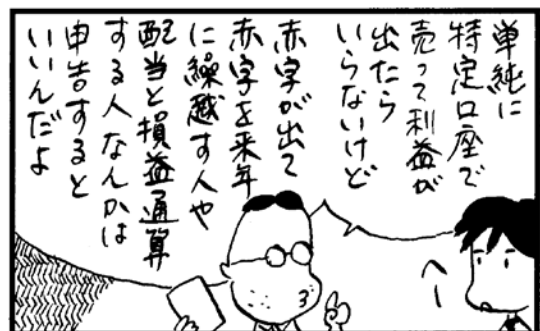 単純に
特定口座で
売って利益が
出たら
いらないけど
赤字が出て
赤字を来年
に繰越す人や
配当と損益通算
する人なんかは
申告すると
いいんだよ
へー